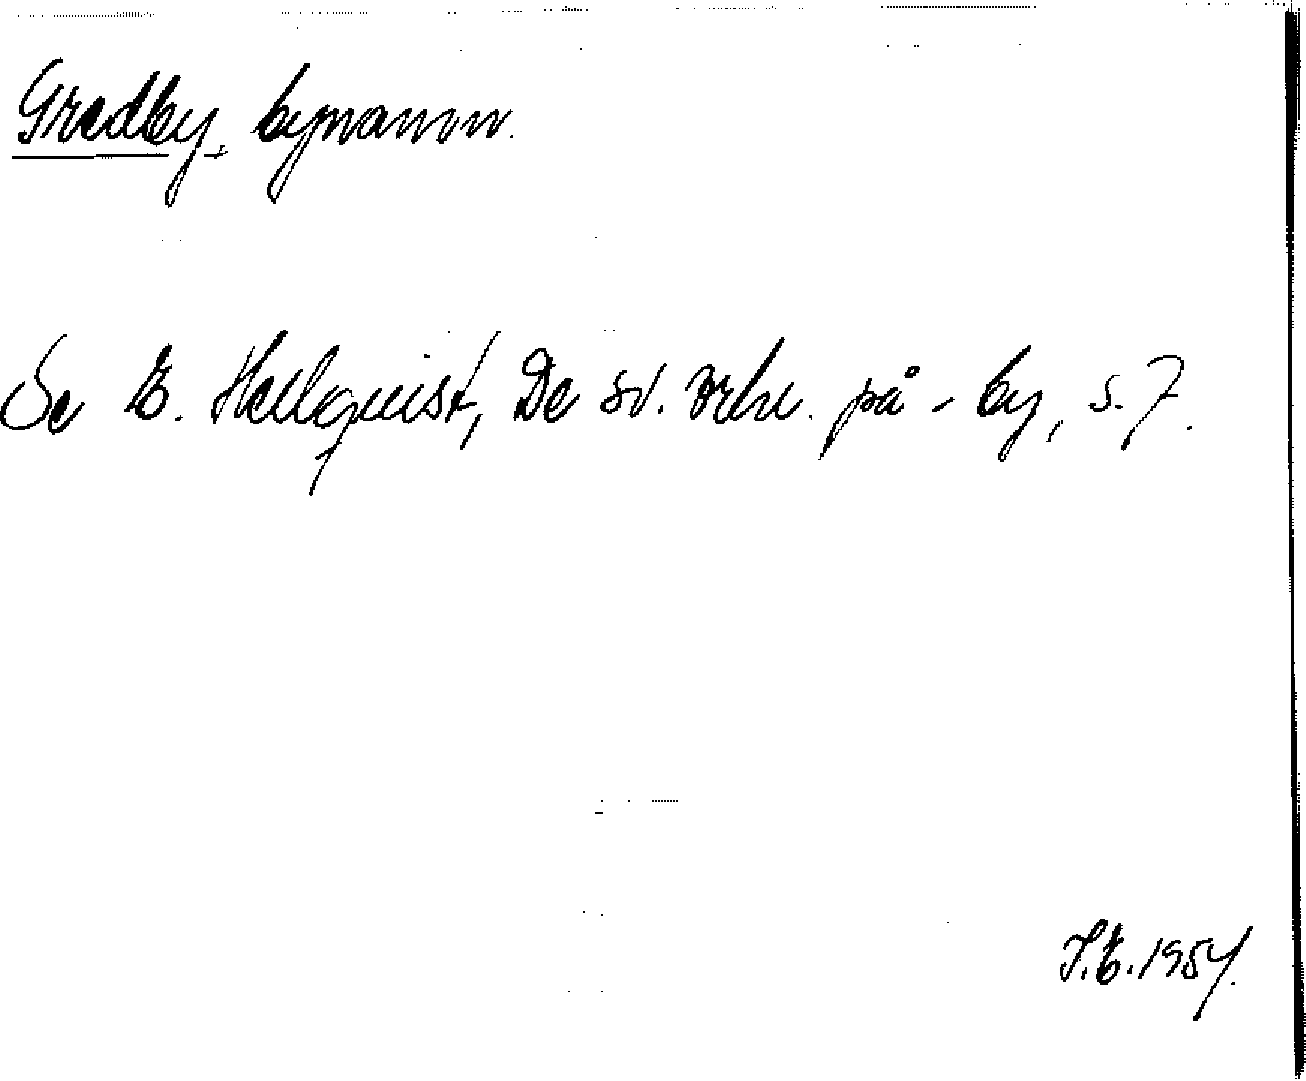 Gredby, bynamn.
Se E. Hellquist, De sv. ortn. på -by, s. 7.
I.E. 1954.